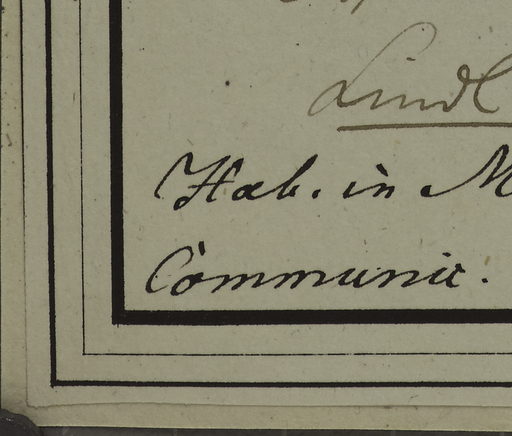 Lindl
Hab. in M
Communic.